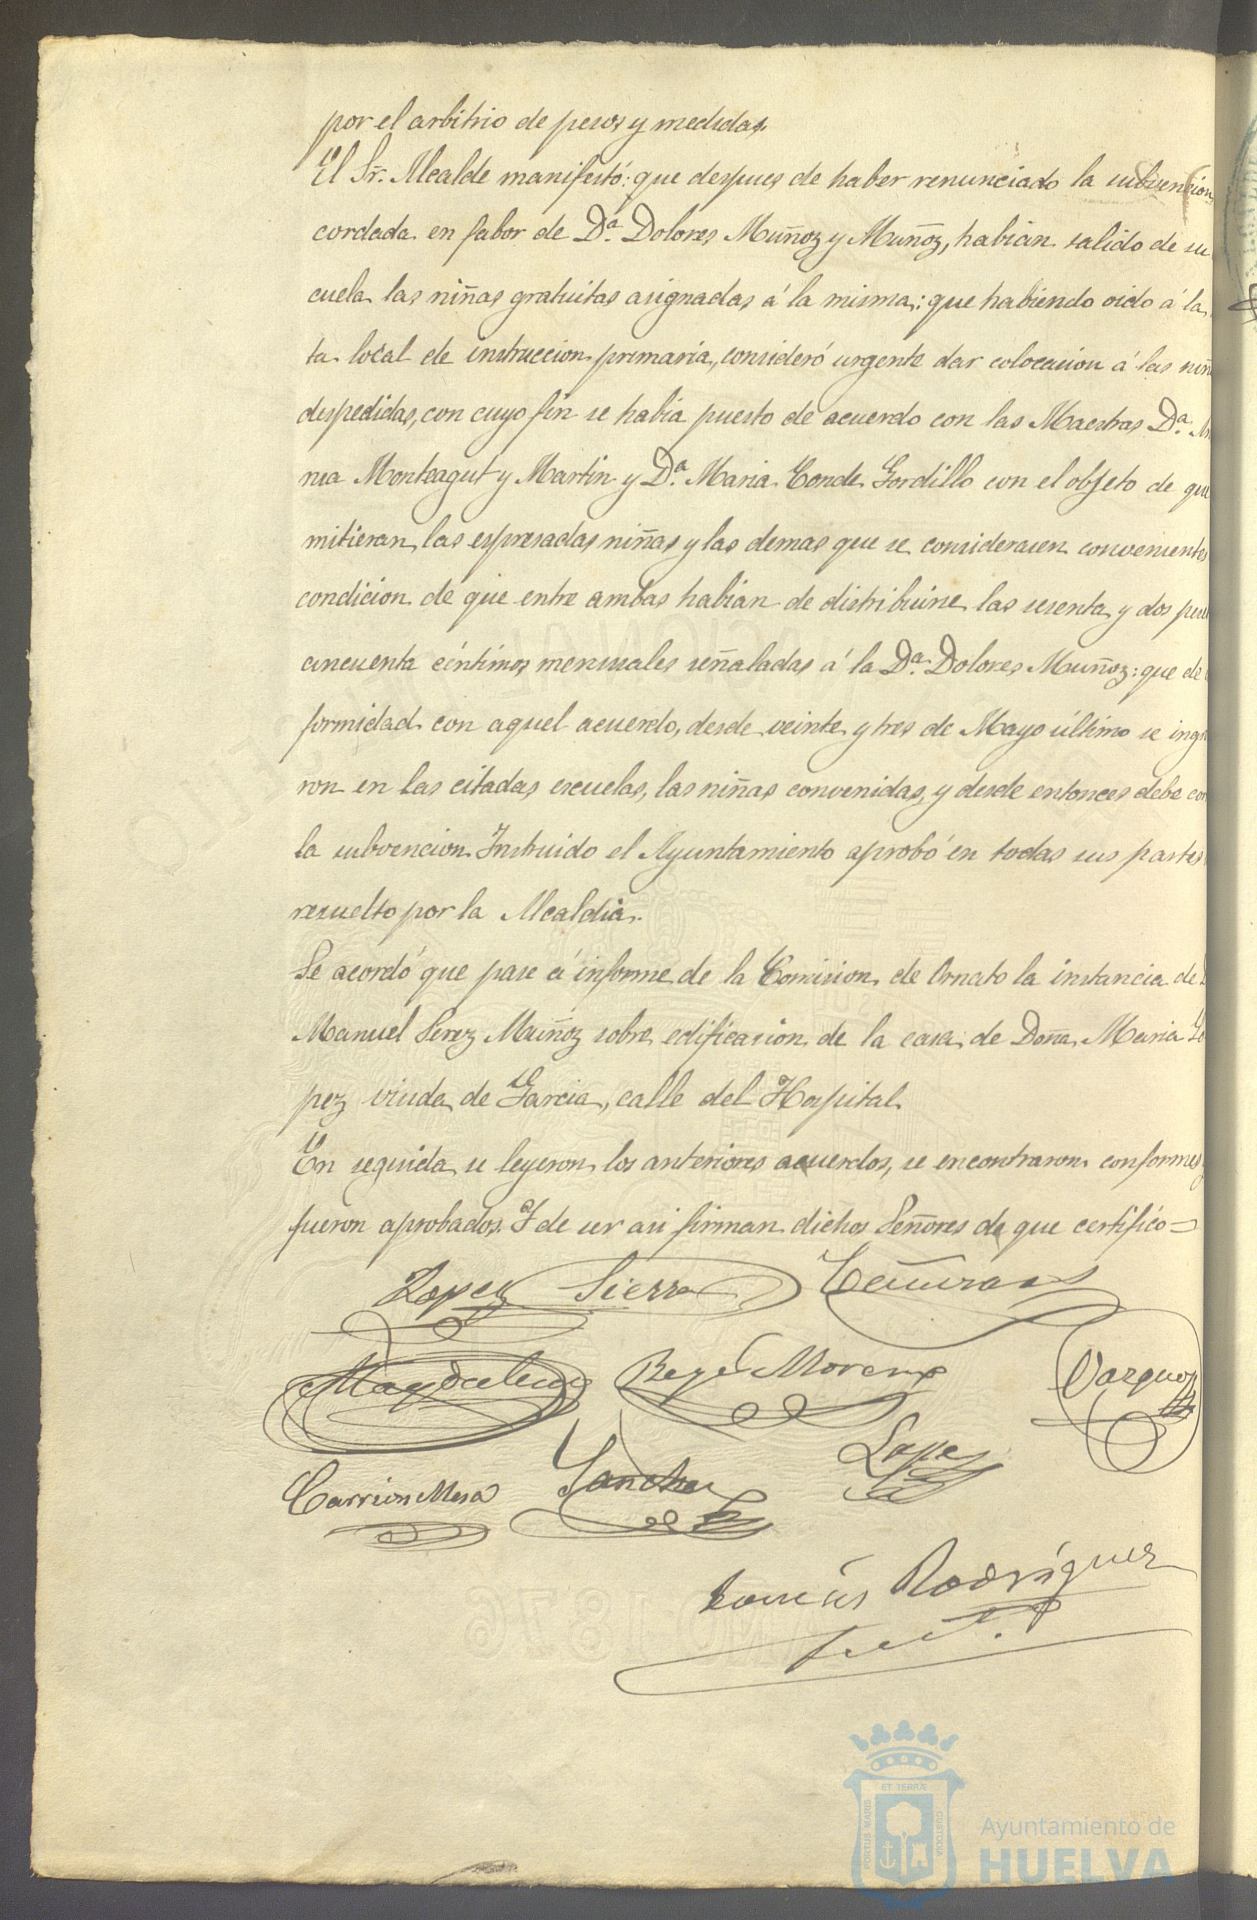 por el arbitrio de pesos y medidas.
El Sr. Alcalde manifestó: que despues de haber renunciado la subvencion
cordada en fabor de Dª. Dolores Muñoz y Muñoz, habian salido de su
cuela las niñas gratuitas asignadas á la misma: que habiendo oido á la
ta local de instruccion primaria, consideró urgente dar colocacion á las niñ
despedidas, con cuyo fin se habia puesto de acuerdo con las Maestras Dª.
nia Monteagut y Martin y Dª. Maria Conde Gordillo con el objeto de que
mitieran las espresadas niñas y las demas que se considerasen convenientes
condicion de que entre ambas habian de distribuirse las sesenta y dos pese
cincuenta céntimos mensuales señaladas á la Dª. Dolores Muñoz: que de
formidad con aquel acuerdo, desde veinte y tres de Mayo último se ingre
ron en las citadas escuelas, las niñas convenidas, y desde entonces debe cor
la subvencion. Instruido el Ayuntamiento aprobó en todas sus partes
resuelto por la Alcaldia.
Se acordó que pase á informe de la Comision de Ornato la instancia de
Manuel Perez Muñoz sobre edificacion de la casa de Doña Maria Lo
pez viuda de Garcia, calle del Hospital.
En seguida se leyeron los anteriores acuerdos, se encontraron conformes
fueron aprobados. Y de ser asi firman dichos Señores de que certifico=
Lopez Sierra
Magdalena Rey Moreno Vazquez
Carrion Mesa Sanchez Lopez
Tomás Rodriguez
AÑO 1876
ET TERRÆ
PORTUS MARIS CUSTODIA
Ayuntamiento de
HUELVA